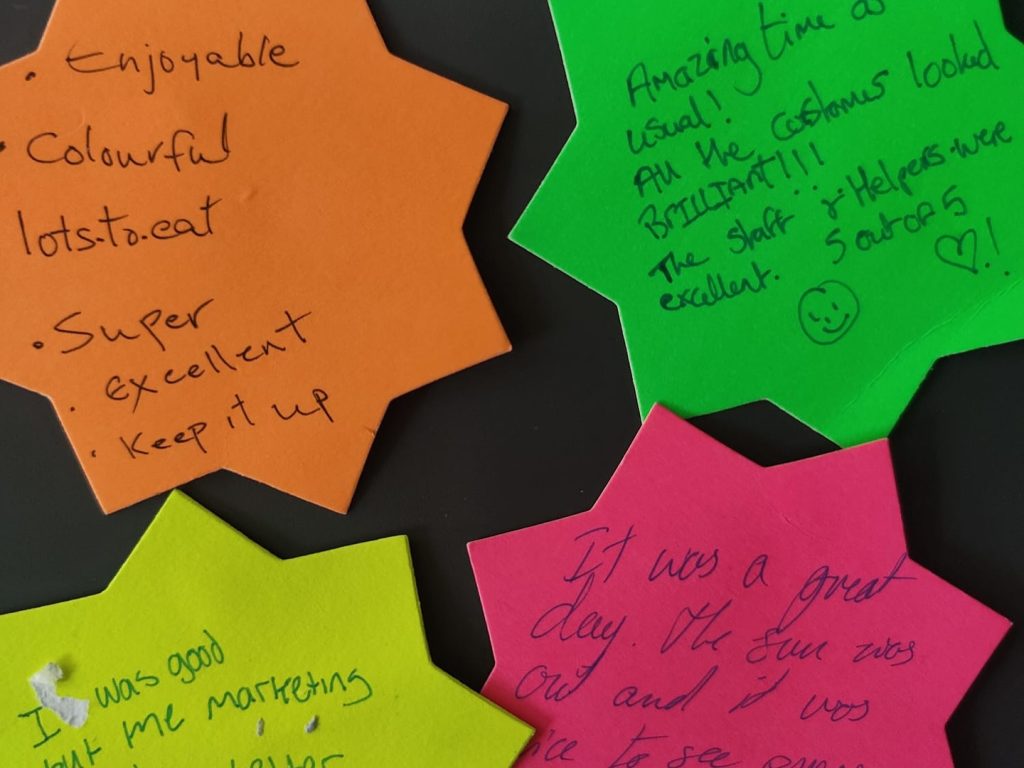 • Enjoyable
• Colourful
lots.to.eat
• Super
• excellent
• Keep it up
Amazing time as
usual!
All the costumes looked
BRILLIANT!!!
The staff & Helpers were
excellent. 5 out of 5
♡!
was good
but me marketing
It was a great
day. The sun was
out and it was
to see